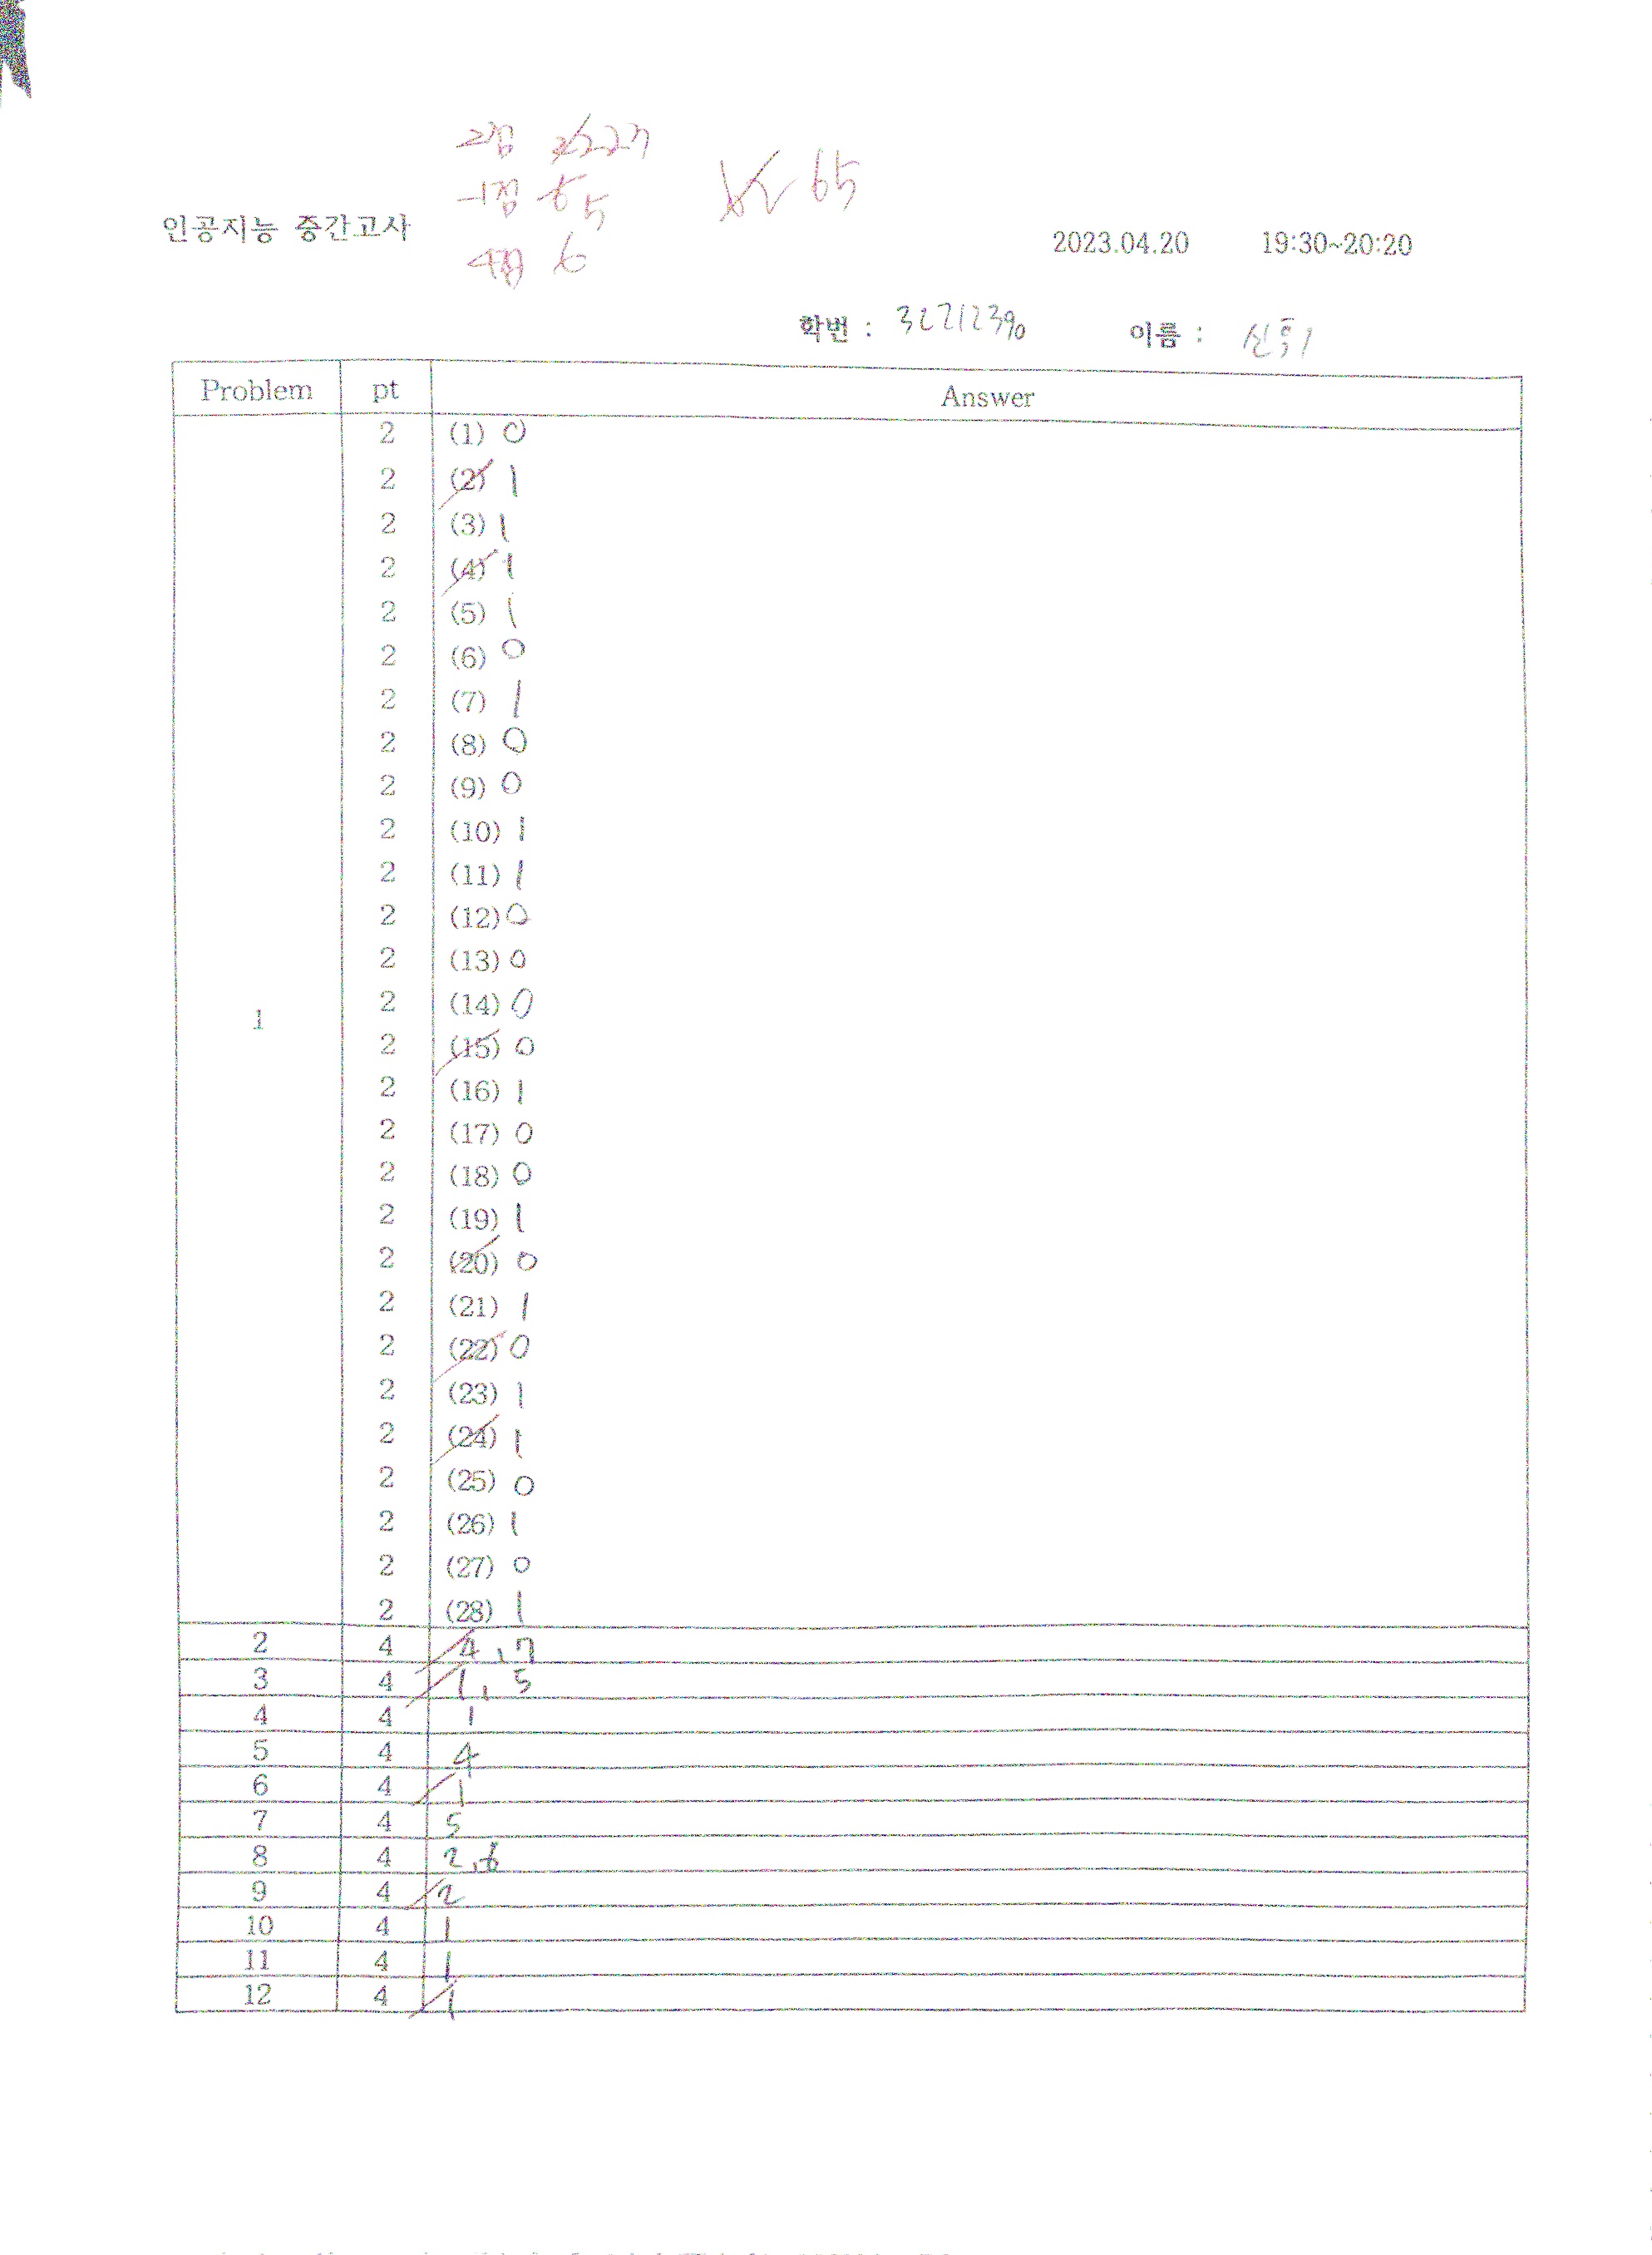 2점
-1점 5
65
인공지능 중간고사
4점 6
2023.04.20 19:30~20:20
학번 : 32212390 이름 :
Problem pt Answer
2 (1) 0
2 (2) 1
2 (3) 1
2 (4) 1
2 (5) 1
2 (6) 0
2 (7) 1
2 (8) 0
2 (9) 0
2 (10) 1
2 (11) 1
2 (12) 0
2 (13) 0
2 (14) 0
1
2 (15) 0
2 (16) 1
2 (17) 0
2 (18) 0
2 (19) 1
2 (20) 0
2 (21) 1
2 (22) 0
2 (23) 1
2 (24) 1
2 (25) 0
2 (26) 1
2 (27) 0
2 (28) 1
2 4 4, 7
3 4 1, 5
4 4 1
5 4 4
6 4 1
7 4 5
8 4 2, 6
9 4 2
10 4 1
11 4 1
12 4 1